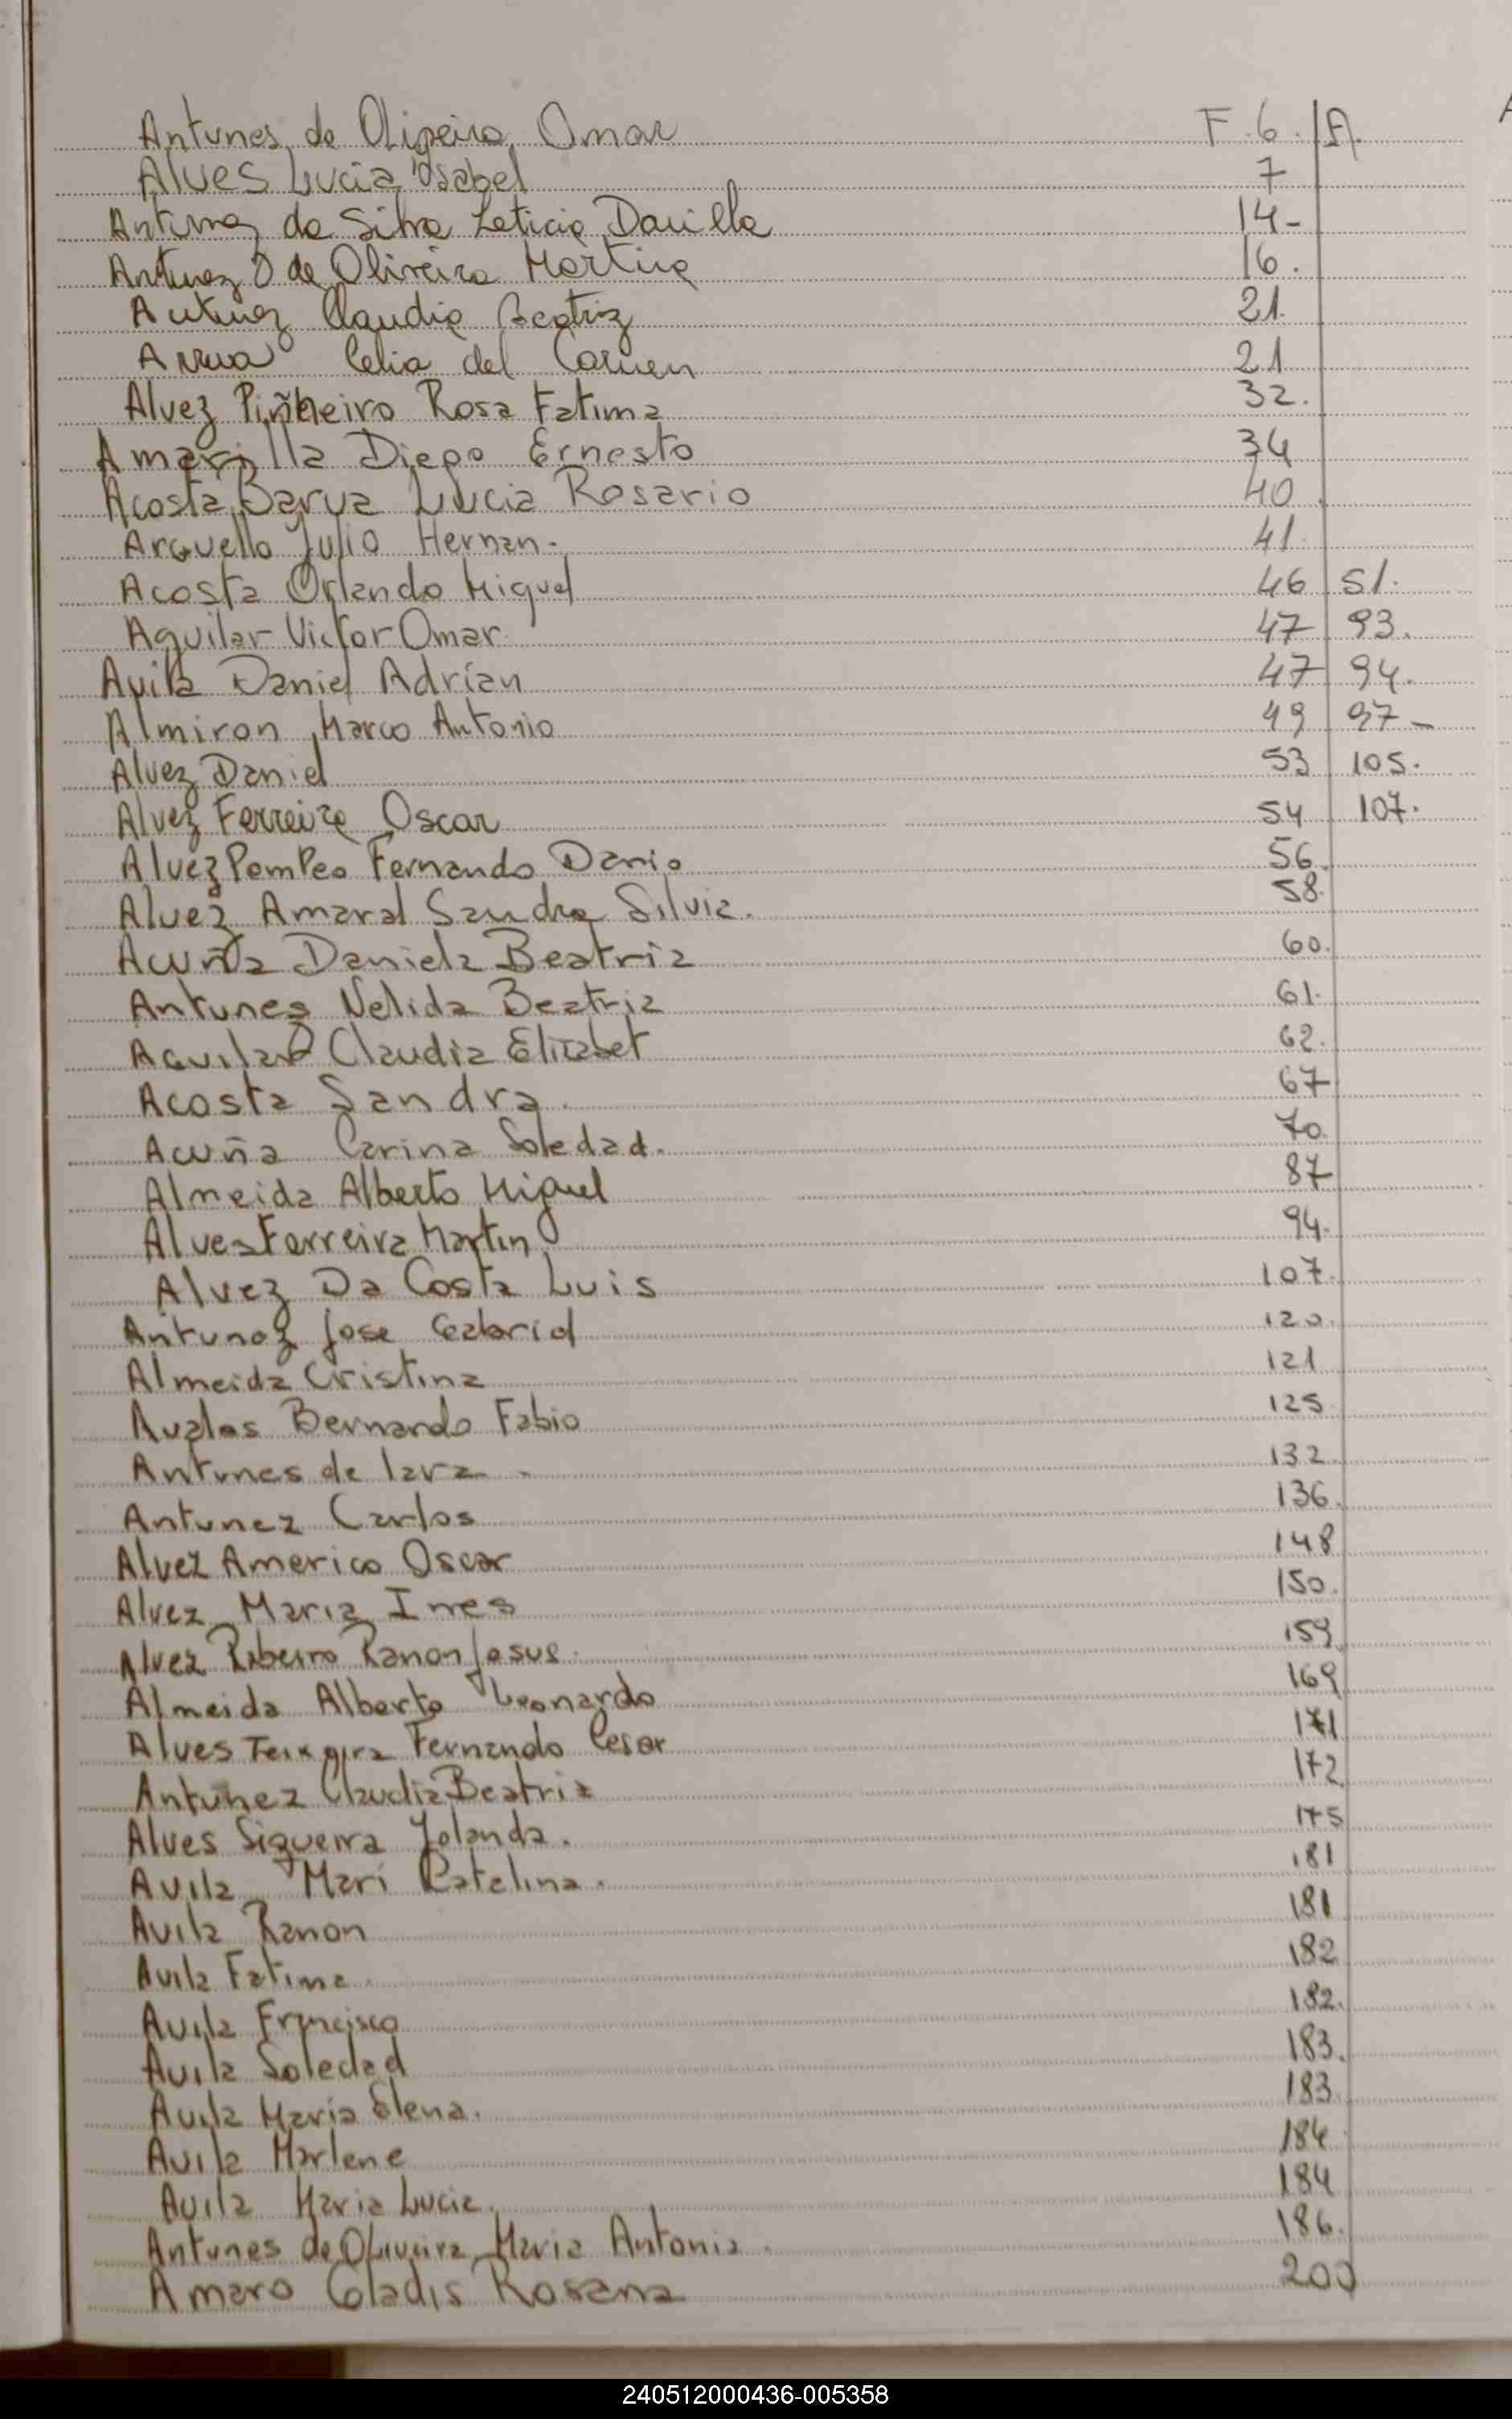 Antunes de Oliveira Omar F. 6. A.
Alves Lucia Isabel 7
Antunez da Silva Leticia Daniella 14-
Antunez O de Oliveira Martina 16.
Antunez Claudia Beatriz 21.
Arrua Celia del Carmen 21
Alvez Piñheiro Rosa Fatima 32.
Amarilla Diego Ernesto 34
Acosta Barua Lucia Rosario 40.
Arguello Julio Hernan. 41.
Acosta Orlando Miguel 46 51.
Aguilar Victor Omar. 47 93.
Avila Daniel Adrian 47 94.
Almiron, Marco Antonio 49 97-
Alvez Daniel 53 105.
Alvez Ferreira Oscar 54 107.
Alvez Pompeo Fernando Dario 56.
Alvez Amaral Sandra Silvia. 58.
Acuña Daniela Beatriz 60.
Antunes Nelida Beatriz 61.
Aguilar Claudia Elizabet 62.
Acosta Sandra. 67
Acuña Carina Soledad. 70.
Almeida Alberto Miguel 87
Alves Ferreira Martin 94.
Alvez Da Costa Luis 107.
Antunez Jose Gabriel 120.
Almeida Cristina 121
Avalos Bernardo Fabio 125
Antunes de lara - 132
Antunez Carlos 136.
Alvez Americo Oscar 148
Alvez Maria Ines 150.
Alvez Ribeiro Ramon Jesus. 159
Almeida Alberto Leonardo 169
Alves Teixeira Fernando Cesar 171
Antunez Claudia Beatriz 172
Alves Siqueira Yolanda. 175
Avila Mari Catalina. 181
Avila Ramon 181
Avila Fatima. 182
Avila Francisco 182.
Avila Soledad 183.
Avila Maria Elena. 183.
Avila Marlene 184
Avila Maria Lucia. 184
Antunes de Oliveira Maria Antonia. 186.
Amaro Gladis Rosana 200
240512000436-005358